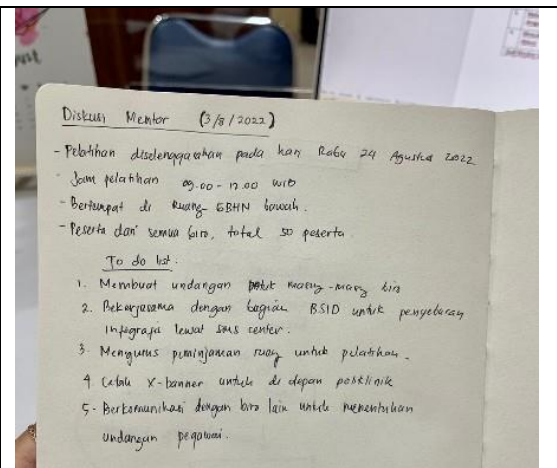 Diskusi Mentor (3/8/2022)
- Pelatihan diselenggarahan pada hari Rabu 24 Agustus 2022
- Jam pelatihan 09.00 - 12.00 WIB
- Bertempat di Ruang GBHN bawah.
- Peserta dari semua biro, total 50 peserta
To do list.
1. Membuat undangan untuk masing-masing biro
2. Bekerjasama dengan bagian BSID untuk penyebaran
infografis lewat sms center.
3. Mengurus peminjaman ruang untuk pelatihan.
4. Cetak X-banner untuk di depan poliklinik
5. Berkomunikasi dengan biro lain untuk menentukan
undangan pegawai.